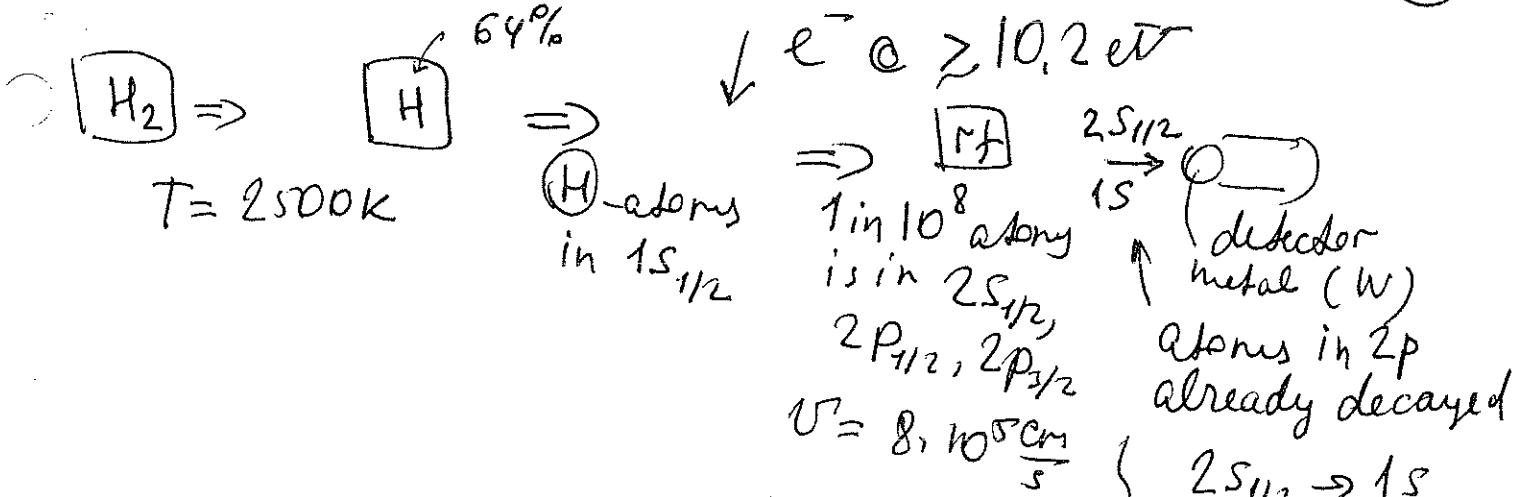 64%
e⁻ @ ≳ 10.2 eV
H₂ ⇒ H ⇒ ⇒ rf 2S₁/₂
1S
T = 2500K
H -atoms
in 1S₁/₂
1 in 10⁸ atoms
is in 2S₁/₂,
2P₁/₂, 2P₃/₂
v = 8,10⁵ cm/s
detector
metal (W)
atoms in 2p
already decayed
2S₁/₂ → 1S